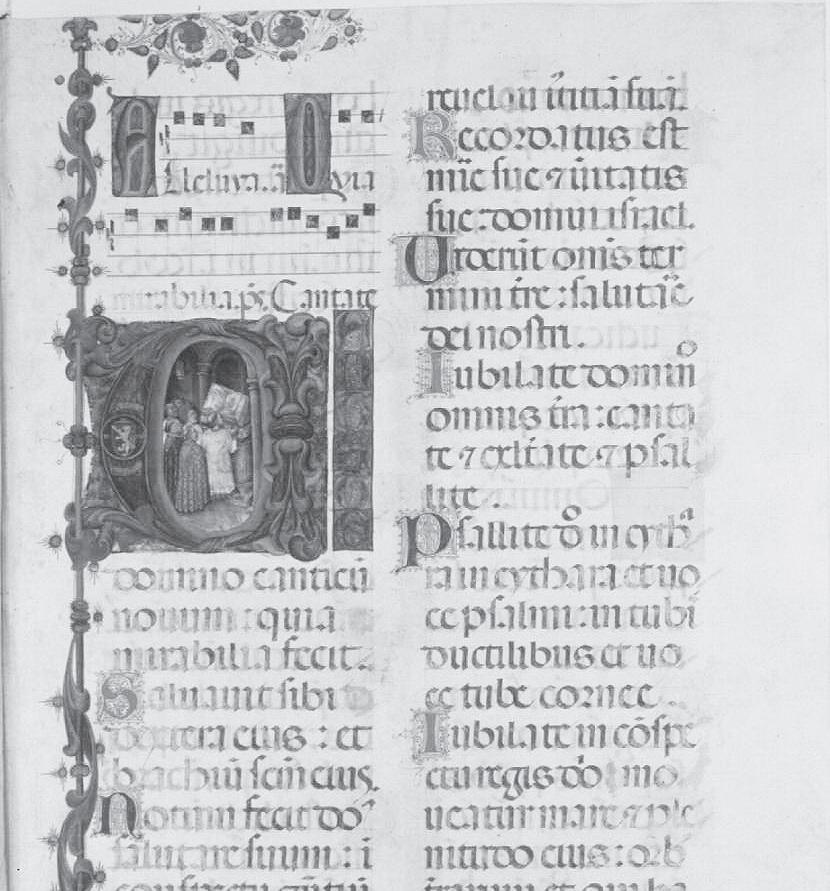 Alleluya. a Quia
mirabilia. ps. Cantate
domino canticū
novum : quia
mirabilia fecit.
Salvavit sibi
dextera eius : et
brachiū scm̄ eius.
Notum fecit do
salutare suum : ī
conspectu
revelavit
Recordatus est
mīe sue ⁊ v̄itatis
sue : domui israel.
Viderūt om̄s ter
mini t̄re : salutāe
dei nostri.
Iubilate domino
omnis t̄ra : canta
te ⁊ exltate ⁊ psal
lite.
Psallite dō in cytha
ra in cythara et vo
ce psalmi : in tubis
ductilibus et vo
ce tube cornee.
Iubilate in cōspe
ctu regis dō mo
veatur mare ⁊ ple
nitudo eius : orb